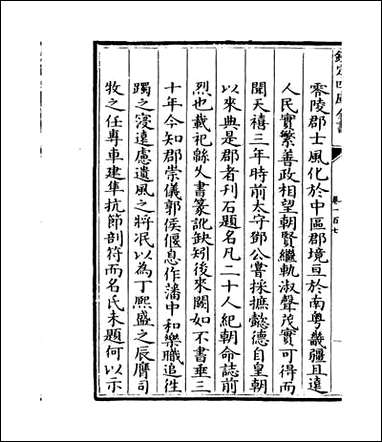 欽定四庫全書
卷一百七
零陵郡士風化於中區郡境亘於南粤畿疆且遠
人民實繁善政相望朝賢繼軌淑聲茂實可得而
聞天禧三年時前太守鄧公嘗採摭懿德自皇朝
以來典是郡者刋石題名凡二十人紀朝命誌前
烈也載祀緜乆書篆訛缺矧後來闕如不書垂三
十年今知郡崇儀郭侯偃息作藩中和樂職追徃
躅之寖遠慮遺風之將冺以為丁熙盛之辰膺司
牧之任專車建隼抗節剖符而名氏未題何以示